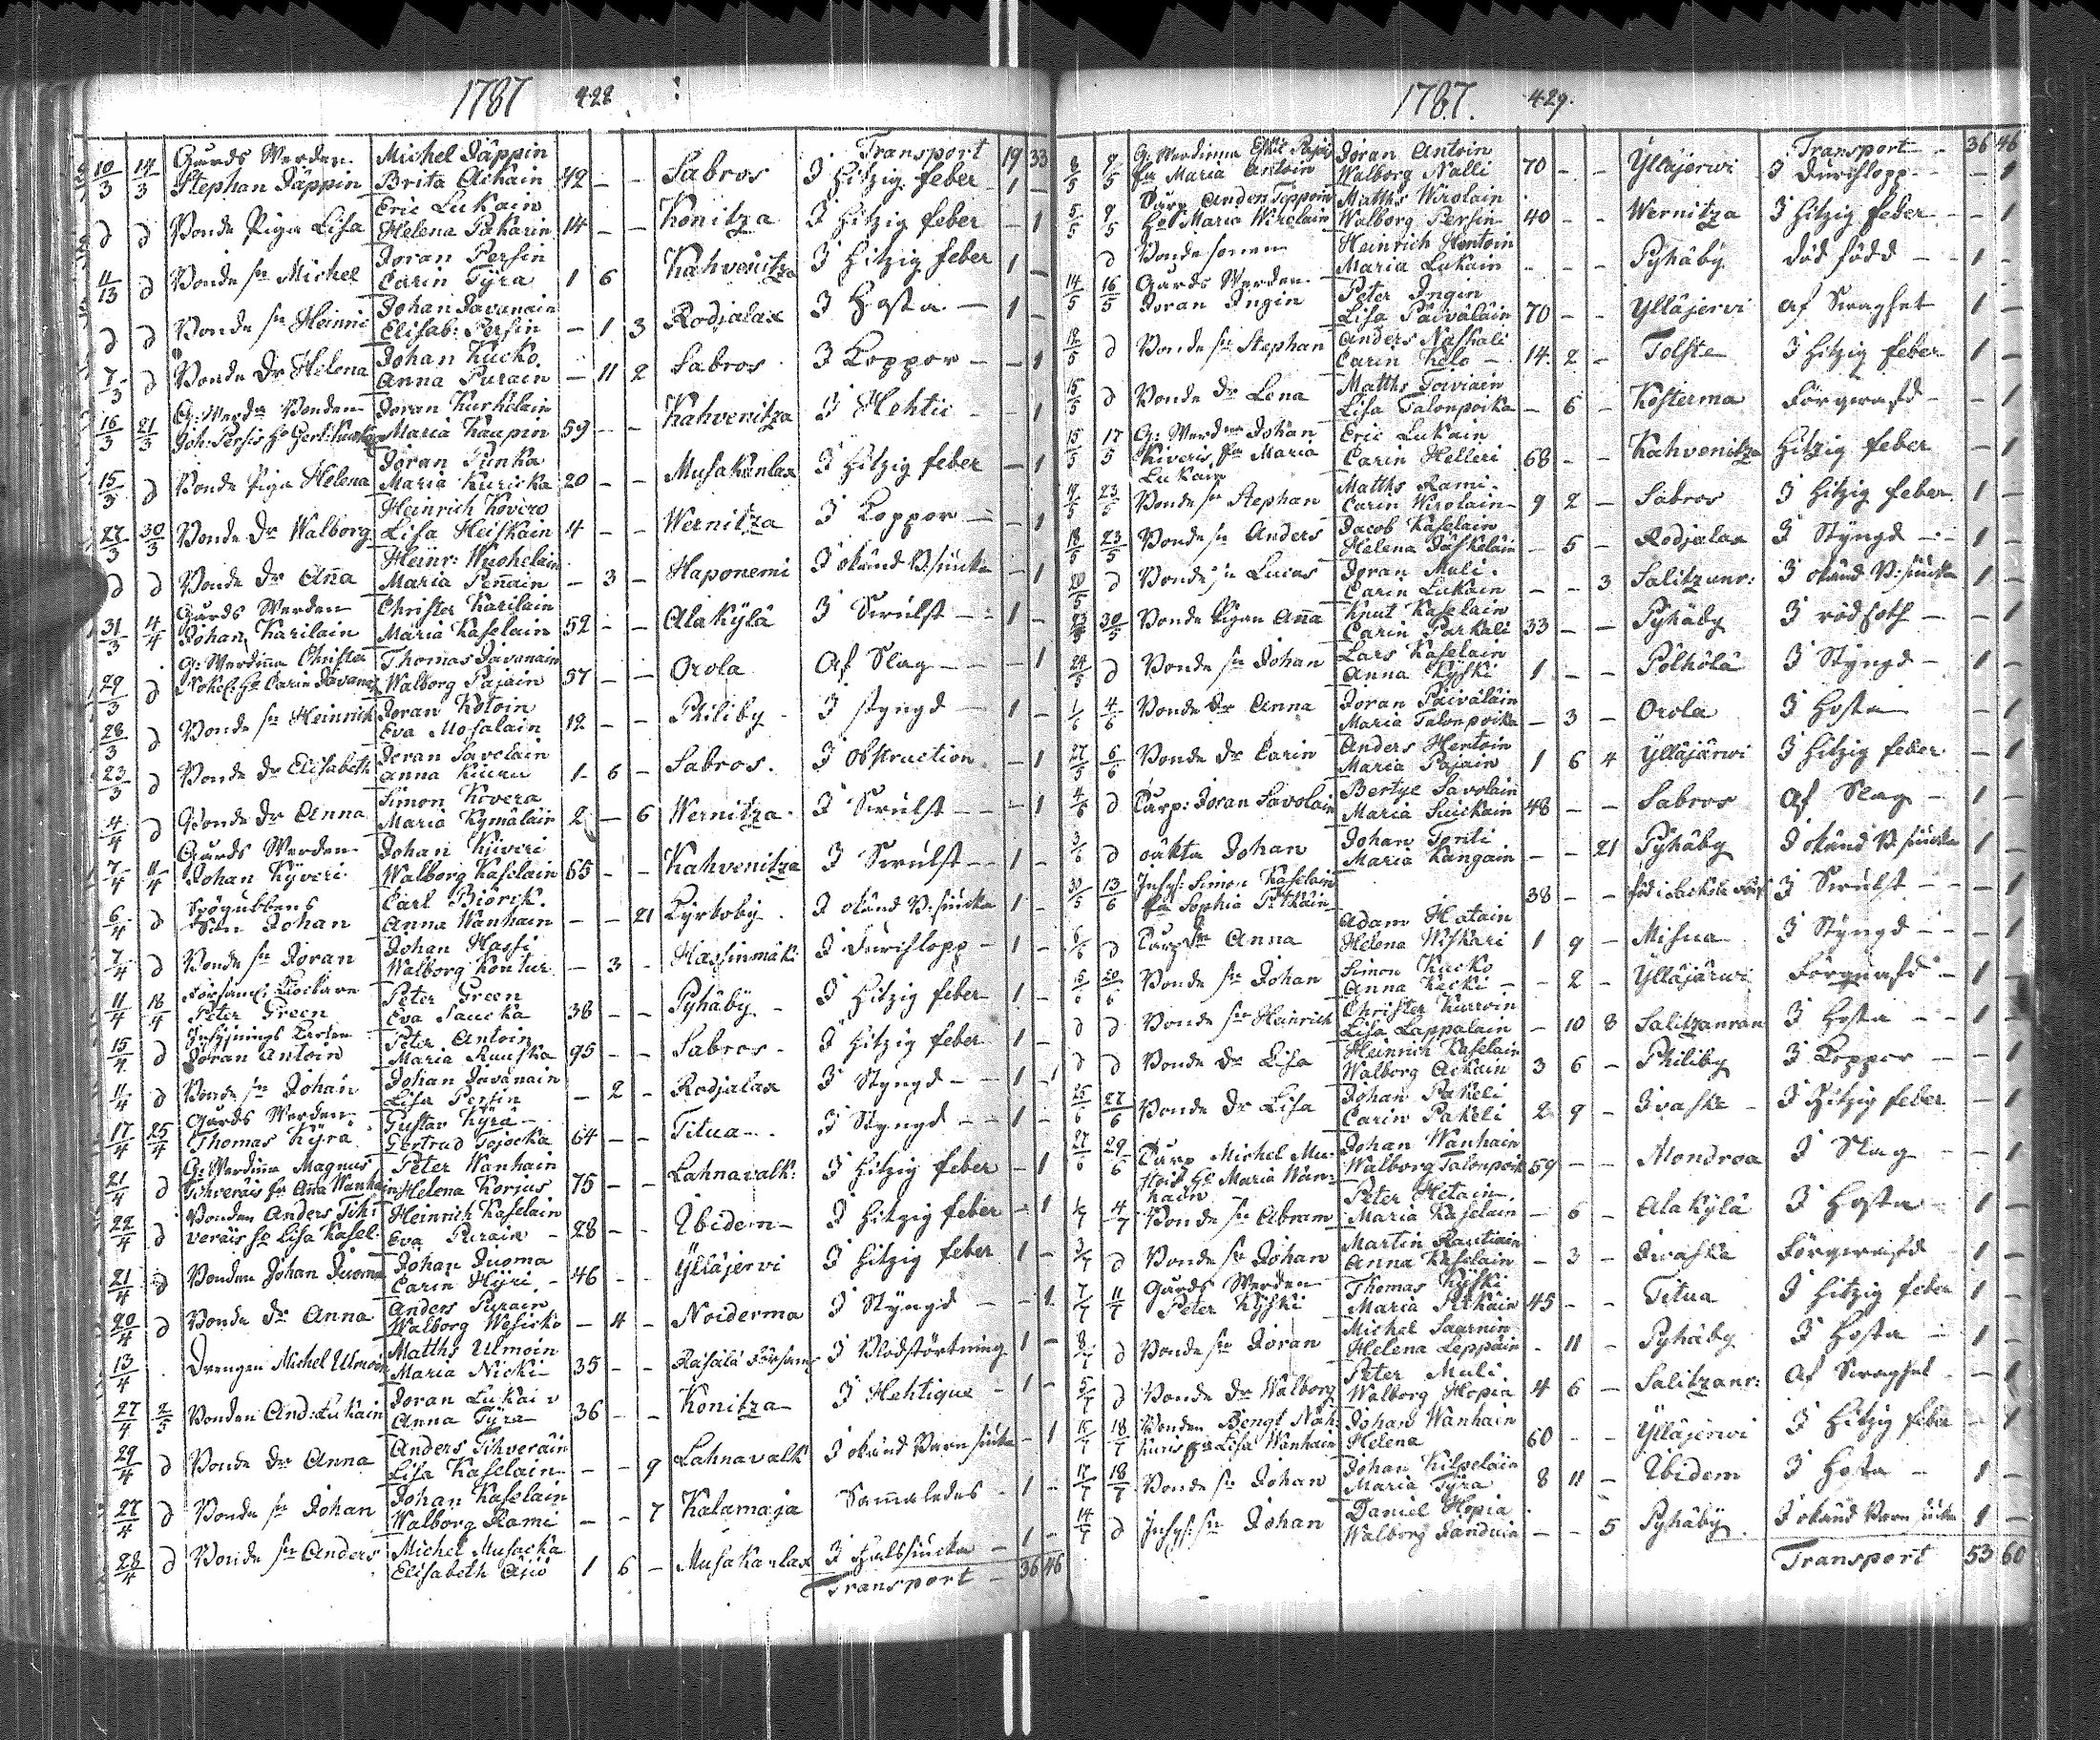 1787 428
Transport 19 33
10/3 14/3 Gårds Werden Michel Jäppin
Stephan Jäppin Brita Ackain 42 - - Sabros I Hitzig feber 1 -
Eric Lukain
d d Bonde Piga Lisa Helena Pakarin 14 - - Konitza I Hitzig feber - 1
Joran Persin
11/13 d Bonde sn Michel Carin Tyra 1 6 Kahvenitza I Hitzig feber 1 -
Johan Javanain
d d Bonde sn Heinric Elisab: Persin - 1 3 Rodjalax I Hosta - 1 -
Johan Kucko
7/3 d Bonde dr Helena Anna Purain - 11 2 Sabros I Koppor - - 1
Joran Kurkelain
16/3 21/3 Maria Kaupin 59 - - Kahvenitza I Hehtic - - 1
Joran Punka
15/3 d Bonde Piga Helena Maria Kuricka 20 - - Musakanlax I Hitzig feber - 1
Heinrich Kovero
27/3 30/3 Bonde dr Walborg Lisa Heiskain 4 - - Wernitza I Koppor - - 1
Heinr: Wuohelain
d d Bonde dr Anna Maria Pennain - 3 - Haponemi I okänd B: siucka - 1
31/3 4/4 Gårds Werden Christer Karilain
Johan Karilain Maria Kaselain 52 - - Alakylä I Swulst - 1 -
G: Werdinna Christer Thomas Javanain
29/3 d Carin Javanain Walborg Pajain 37 - - Orola Af Slag - - 1
28/3 d Bonde sn Heinrich Joran Kotoin
Eva Mosalain 12 - - Philiby I styngd - 1 -
Joran Savolain
23/3 d Bonde dr Elisabeth Anna 1 6 - Sabros I Obstruction - 1
Simon Kovera
4/4 d Bonde dr Anna Maria Kymäläin 2 - 6 Wernitza I Swulst - - 1
Gårds Werden Johan Kiveri
7/4 11/4 Johan Kyveri Walborg Kaselain 65 - - Kahvenitza I Swulst - 1 -
Carl Biörck
6/4 d Son Johan Anna Wanhain - - 21 Kyrkoby I okänd B: siucka 1 -
Johan Hassi
7/4 d Bonde sn Joran Walborg Kontur - 3 - Hassinmäki I Durchlopp - 1 -
Församl: Klockare Peter Green
11/4 18/4 Peter Green Eva Saucka 38 - - Pyhäby I Hitzig feber 1 -
Peter Antoin
15/4 d Joran Antoin Maria Ruuska 95 - - Sabros I Hitzig feber 1 -
Johan Javanain
11/4 d Bonde sn Johan Lisa Persin - 2 - Rodjalax I Styngd - 1 -
Gårds Werden Gustav Kyrä
17/4 25/4 Thomas Kyrä Gertrud Tojocka 64 - - Titua I Styngd - 1 -
G: Werdinna Magnus Peter Wanhain
21/4 d Tihveräis hu Anna Wanhain Helena Korjus 75 - - Lahnavalk: I Hitzig feber - 1
Bonden Anders Tih: Heinrich Kaselain
22/4 d veräis hu Lisa Kasel: Eva Purain 28 - - Ibidem I Hitzig feber - 1
Johan Juoma
21/4 d Bonden Johan Juoma Carin Hyri 46 - - Ylläjervi I Hitzig feber 1 -
Anders Purain
20/4 d Bonde dr Anna Walborg Wesicko - 4 - Noiderma I Styngd - - 1
Matths Ulmoin
13/4 Drengen Michel Ulmoin Maria Nicki 35 - - Räisälä Församl: I Blodstörtning 1 -
Joran Lukain
27/4 2/5 Bonden And: Lukain Anna Tyra 36 - - Konitza I Hehtique - 1 -
Anders Tihveräin
29/4 d Bonde dr Anna Lisa Kaselain - - 9 Lahnavalk I okänd Barn siucka - 1
Johan Kaselain
27/4 d Bonde sn Johan Walborg Rami - - 7 Kalamaja Sammaledes - 1 -
Michel Musacka
28/4 d Bonde sn Anders Elisabeth Äijö 1 6 - Musakanlax I Halssiucka - 1 -
Transport - 36 46
1787. 429.
Transport - 36 46
G. Werdinna Joran Antoin
3/5 9/5 Maria Antoin Walborg Nalli 70 - - Ylläjerwi I Durchlopp - - 1
Anders Teppoin Matths Wirolain
5/5 9/5 Hu Maria Wirolain Walborg Persin 40 - - Wernitza I Hitzig feber - - 1
Heinrich Hentoin
d Bonde sonen Maria Lukain - - - Pyhäby Död född - 1 -
14/5 16/5 Gårds Werden Peter Ingin
Joran Ingin Lisa Päiväläin 70 - - Ylläjervi af Swaghet 1 -
Anders Naskali
12/5 d Bonde sn Stephan Carin Kelo 14 2 - Tolske I Hitzig feber 1 -
Matths Toiviain
15/5 d Bonde dr Lena Lisa Talonpoika - 6 - Kosterma Förgwafd - 1
G: Werdna Johan Eric Lukain
15/5 17/5 Kiveris hu Maria Carin Helleri 68 - - Kahvenitza Hitzig feber - 1
Lukain Matths Rami
19/5 23/5 Bonde sn Stephan Carin Wirolain 9 2 - Sabros I Hitzig feber 1 -
Jacob Kaselain
18/5 23/5 Bonde sn Anders Helena Jäskeläin - 5 - Rodjalax I Styngd 1 -
Joran Muli
20/5 d Bonde sn Lucas Carin Lukain - - 3 Salitzanr: I okänd B: siucka 1 -
Knut Kaselain
30/5 Bonde Pigan Anna Carin Parkali 33 - - Pyhäby I rödsoth - - 1
Lars Kaselain
24/5 d Bonde sn Johan Anna Kyski 1 - - Pölhölä I Styngd - 1 -
Joran Päiväläin
1/6 4/6 Bonde dr Anna Maria Talonpoika - 3 - Orola I Hosta - 1
Anders Hentoin
27/5 6/6 Bonde dr Carin Maria Pajain 1 6 4 Ylläjärwi I Hitzig feber - 1
Bertje Savolain
4/6 d Joran Savolain Maria Suickain 48 - - Sabros af Slag - 1 -
Johan Tonti
3/6 d oäkta Johan Maria Kangain - - 21 Pyhäby I okänd B siucka 1 -
Inhys: Simon Kaselain
30/5 13/6 Sophia Pitkäin 38 - - I Swulst - - 1
Adam Hatain
6/6 d Anna Helena Wiskari 1 9 - Misua I Styngd - - 1
Simon Kucko
15/6 20/6 Bonde sn Johan Anna Kecki - 2 - Ylläjärwi Förgwafd 1 -
Christer Kurvoin
d d Bonde sn Heinrich Lisa Lappalain - 10 8 Salitzanran I Hosta - 1 -
Heinrich Kaselain
d d Bonde dr Lisa Walborg Ackain 3 6 - Philiby I Koppor - - 1
Johan Pakeli
25/6 27/6 Bonde dr Lisa Carin Pakeli 2 9 - Ivaska I Hitzig feber - 1
Johan Wanhain
27/6 29/6 Michel Mu- Walborg Talonpoik 59 - - Mondroa I Slag - - 1
Hu Maria Wan-
hain Peter Hetain
4/7 Bonde sn Abram Maria Kaselain - 6 - Alakylä I Hosta 1 -
Martin Rautiain
3/7 d Bonde sn Johan Anna Kaselain - 3 - Iwaska Förgwafd 1 -
Gårds Werden Thomas Kyski
7/7 11/7 Peter Kyski Maria Pitkäin 45 - - Titua I Hitzig feber 1 -
Michel Saarnin
d Bonde sn Joran Helena Leppäin - 11 - Pyhäby I Hosta - 1 -
Peter Muli
5/7 d Bonde dr Walborg Walborg Hopia 4 6 - Salitzanr: Af Swaghet - 1
Bonden Bengt Näh: Johan Wanhain
15/7 18/7 Lisa Wanhain Helena 60 - - Ylläjerwi I Hitzig feber - 1
Johan Kilpeläin
17/7 18/7 Bonde sn Johan Maria Tyra 8 11 - Ibidem I Hosta - 1 -
Daniel Hopia
14/7 d Inhys: sn Johan Walborg - - 5 Pyhäby I okänd Barn siucka 1 -
Transport 53 60